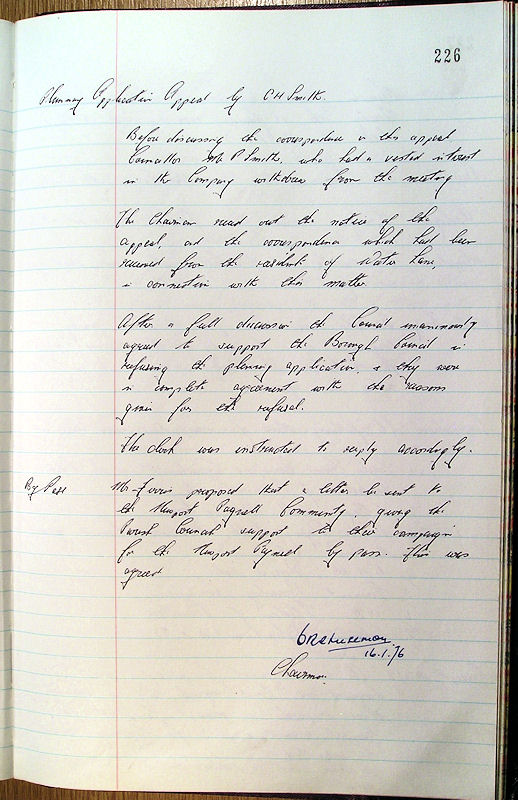 226
Planning Application Appeal by C H Smith.
Before discussing the correspondence in this appeal
Councillor Mr P Smith, who had a vested interest
in the Company withdrew from the meeting
The Chairman read out the notice of the
appeal, and the correspondence which had been
received from the residents of Water Lane,
in connection with this matter.
After a full discussion the Council unanimously
agreed to support the Borough Council in
refusing the planning application, & they were
in complete agreement with the reasons
given for the refusal.
The clerk was instructed to reply accordingly.
By Pass
Mr proposed that a letter be sent to
the Newport Pagnell Community, giving the
Parish Council support to their campaign
for the Newport Pagnell by pass. This was
agreed
16.1.76
Chairman.